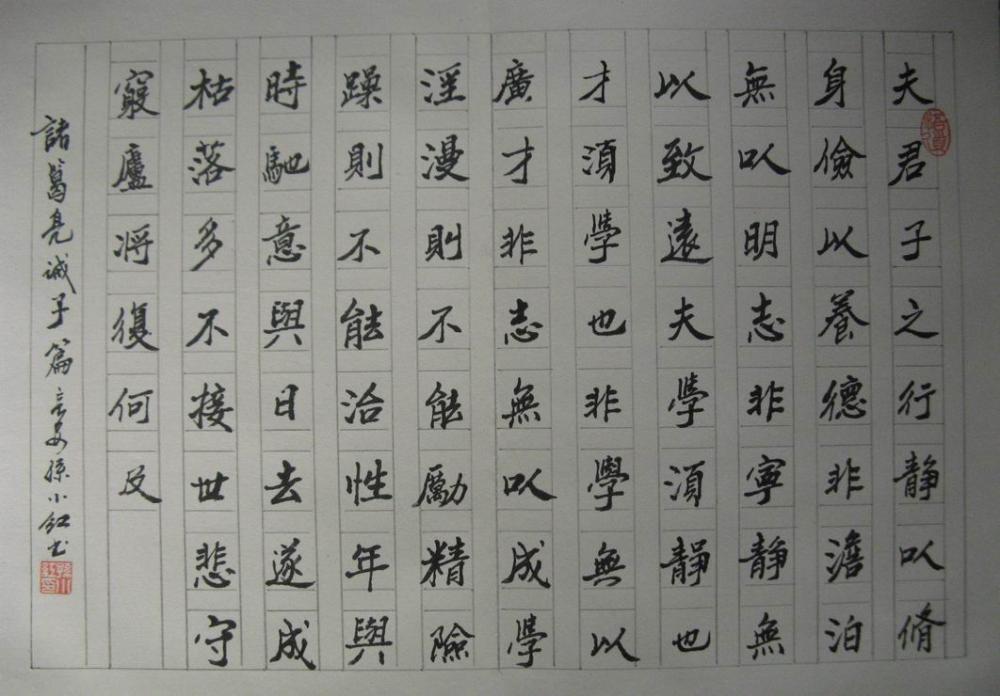 夫君子之行静以脩
身儉以養德非澹泊
無以明志非寧静無
以致遠夫學須静也
才須學也非學無以
廣才非志無以成學
淫漫則不能勵精險
躁則不能治性年與
時馳意與日去遂成
枯落多不接世悲守
窮廬将復何及
諸葛亮诫子篇 孫小红书